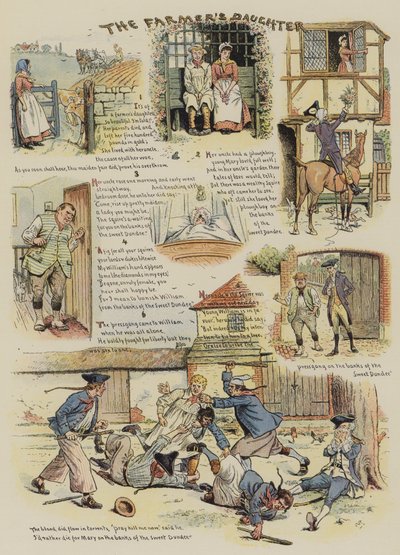 THE FARMER'S DAUGHTER
1
It's of
a farmer's daughter,
so beautiful I'm told,
Her parents died and
left her five hundred
pounds in gold;
She lived with her uncle,
the cause of all her woe,
As you soon shall hear, this maiden fair did prove his overthrow.
2
Her uncle had a ploughboy,
young Mary loved full well;
And in her uncle's garden their
tales of love would tell;
But there was a wealthy squire
who oft came her to see,
Yet still she loved her
ploughboy on
the banks
of the
sweet Dundee.
3
Her uncle rose one morning and early went
straightway,
And knocking at
bedroom door, he unto her did say:
Come, rise up pretty maiden,
a lady you might be,
The squire is waiting
for you on the banks of
the sweet Dundee."
4
A fig for all your squires,
your lords & dukes likewise
My William's hand appears
to me like diamonds in my eyes;
Begone, unruly female, you
ne'er shall happy be,
For I mean to banish William
from the banks of the sweet Dundee."
young William is in fa-
6
The pressgang came to William
when he was all alone,
He boldly fought for liberty but they
was six to one,
pressgang on the banks of the
Sweet Dundee"
The blood did flow in torrents, "pray kill me now" said he,
I'd rather die for Mary on the banks of the Sweet Dundee"